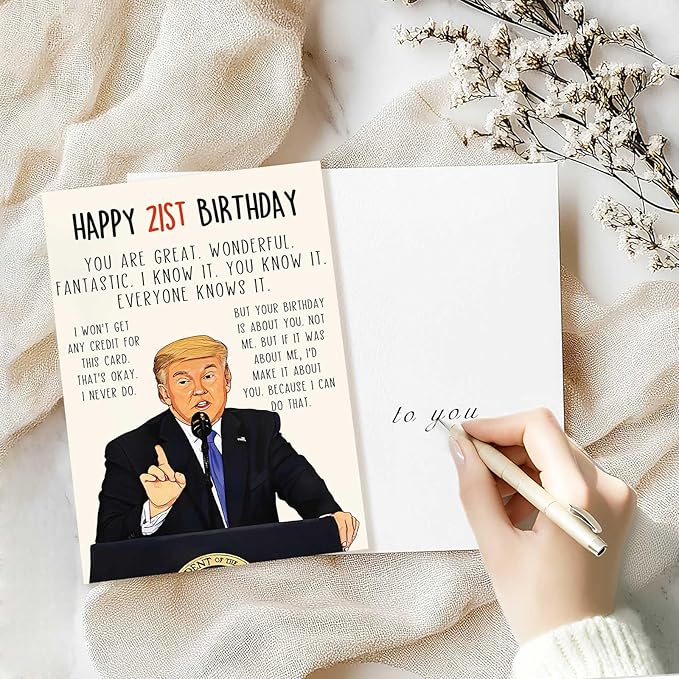 HAPPY 21ST BIRTHDAY
YOU ARE GREAT. WONDERFUL.
FANTASTIC. I KNOW IT. YOU KNOW IT.
EVERYONE KNOWS IT.
I WON'T GET
ANY CREDIT FOR
THIS CARD.
THAT'S OKAY.
I NEVER DO.
BUT YOUR BIRTHDAY
IS ABOUT YOU. NOT
ME. BUT IF IT WAS
ABOUT ME, I'D
MAKE IT ABOUT
YOU. BECAUSE I CAN
DO THAT.
DENT OF THE
to you